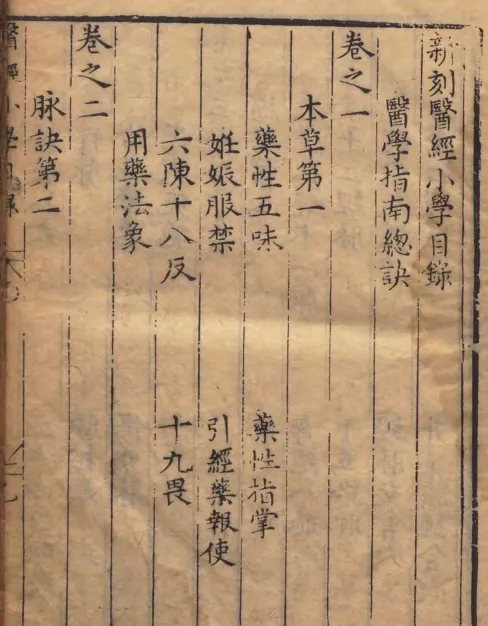 新刻醫經小學目錄
醫學指南總訣
卷之一
本草第一
藥性五味 藥性指掌
妊娠服禁 引經藥報使
六陳十八反 十九畏
用藥法象
卷之二
脉訣第二
醫經小學目錄